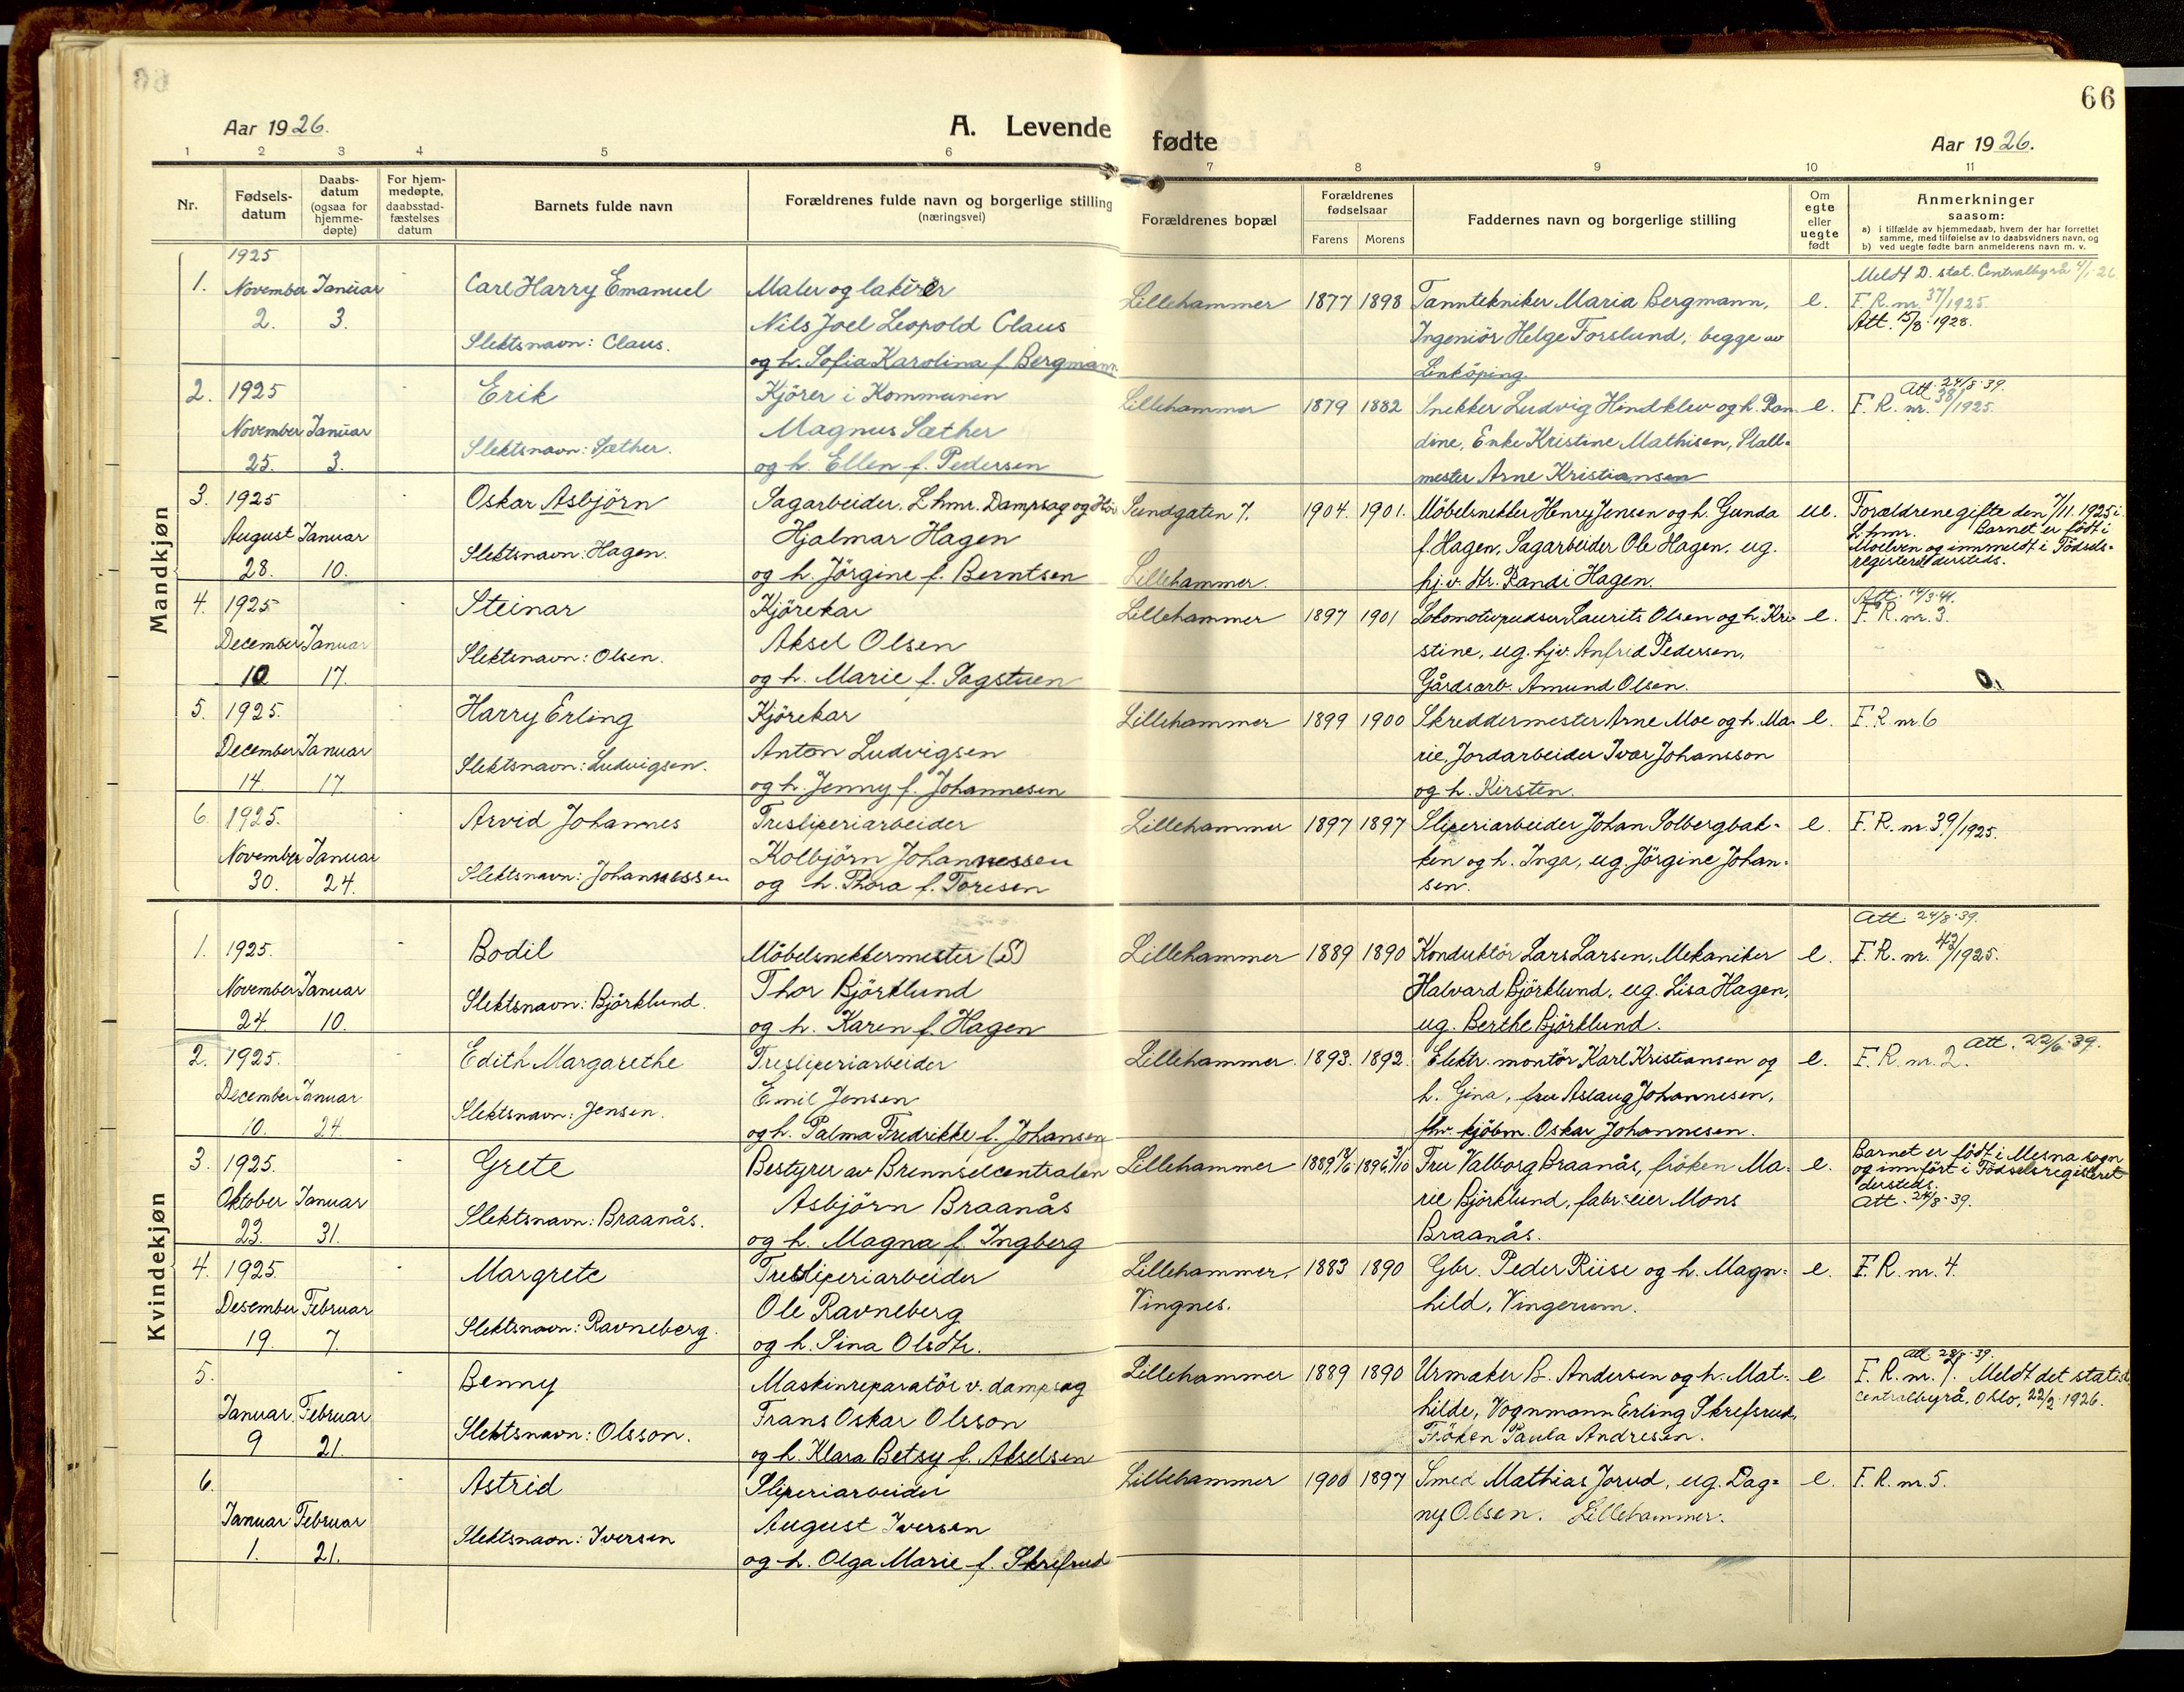 66
Aar 1926.
A. Levende fødte
Aar 1926.
1 2 3 4 5 6 7 8 9 10 11
Nr.
Fødsels-
datum
Daabs-
datum
(ogsaa for
hjemme-
døpte)
For hjem-
medøpte,
daabsstad-
fæstelses
datum
Barnets fulde navn
Forældrenes fulde navn og borgerlige stilling
(næringsvei)
Forældrenes bopæl
Forældrenes
fødselsaar
Farens Morens
Faddernes navn og borgerlige stilling
Om
egte
eller
uegte
født
Anmerkninger
saasom:
a) i tilfælde av hjemmedaab, hvem der har forrettet
samme, med tilføielse av to daabsvidners navn, og
b) ved uegte fødte barn anmelderens navn m. v.
Mandkjøn
1925
Meldt D. stat. Centralbyrå 4/1-26
1. November Januar Carl Harry Emanuel Maler og lakirer Lillehammer 1877 1898 Tanntekniker Maria Bergmann, e. F. R. nr. 37/1925.
2. 3. Nils Joel Leopold Claus Ingeniör Helge Forslund, begge av Att. 15/8-1928.
Slektsnavn: Claus. og h. Sofia Karolina f. Bergmann Linköping.
2. 1925 Erik Kjörer i Kommunen Lillehammer 1879 1882 Snekker Ludvig Hindklev og h. Ran- e. F. R. nr. 38/1925. Att. 24/8-39.
November Januar Magnus Sæther dine, Enke Kristine Mathisen, Stall-
25. 3. Slektsnavn: Sæther. og h. Ellen f. Pedersen mester Arne Kristiansen
3. 1925 Oskar Asbjörn Sagarbeider, Lhmr. Dampsag og Höv Sundgaten 7. 1904. 1901. Möbelsnekker Henry Jensen og h. Gunda ue. Forældrene gifte den 7/11. 1925 i
August Januar Hjalmar Hagen f. Hagen, Sagarbeider Ole Hagen, ug. Lhmr. Barnet er födt i
28. 10. Slektsnavn: Hagen. og h. Jörgine f. Berntsen Lillehammer. hj.v. Randi Hagen. Moelven og innmeldt i Födsels-
registeret dersteds.
4. 1925 Steinar Kjörekar Lillehammer 1897 1901 Lokomotivpudser Laurits Olsen og h. Kri- e. F. R. nr. 3.
December Januar Aksel Olsen stine, ug. hjv. Anfrid Pedersen,
10 17. Slektsnavn: Olsen. og h. Marie f. Sagstuen Gårdsarb. Amund Olsen.
5. 1925. Harry Erling Kjörekar Lillehammer 1899 1900 Skreddermester Arne Moe og h. Ma- e. F. R. nr. 6
December Januar Anton Ludvigsen rie, Jordarbeider Ivar Johansson
14. 17 Slektsnavn: Ludvigsen. og h. Jenny f. Johannesen og h. Kirsten.
6. 1925. Arvid Johannes Tresliperiarbeider Lillehammer 1897 1897 Sliperiarbeider Johan Solbergbak- e. F. R. nr. 39/1925.
November Januar Kolbjörn Johannessen ken og h. Inga, ug. Jörgine Johan-
30. 24. Slektsnavn: Johannessen og h. Thora f. Toresen sen.
Kvindekjøn
Att. 24/8-39.
1. 1925. Bodil Möbelsnekkermester (S) Lillehammer 1889 1890 Konduktör Lars Larsen, Mekaniker e. F. R. nr. 42/1925.
November Januar Thor Björklund Halvard Björklund, ug. Lisa Hagen,
24 10. Slektsnavn: Björklund. og h. Karen f. Hagen ug. Berthe Björklund.
2. 1925. Edith Margarethe Tresliperiarbeider Lillehammer. 1893. 1892. Elektr. montör Karl Kristiansen og e. F. R. nr. 2. Att. 22/6-39.
December Januar Emil Jensen h. Gina, fru Aslaug Johannesen,
10. 24. Slektsnavn: Jensen. og h. Palma Fredrikke f. Johansen fhv. kjöbm. Oskar Johannesen.
3. 1925. Grete Bestyrer av Brennselcentralen Lillehammer 1889 1896 Fru Valborg Braanås, fröken Ma- e. Barnet er födt i Mesna sogn
Oktober Januar Asbjörn Braanås rie Björklund, fabr. eier Mons og innfört i Födselsregisteret
23. 31. Slektsnavn: Braanås. og h. Magna f. Ingberg Braanås. dersteds.
Att. 24/8-39.
4. 1925. Margrete Tresliperiarbeider Lillehammer, 1883 1890 Gbr. Peder Riise og h. Magn- e. F. R. nr. 4.
Desember Februar Ole Ravneberg Vingnes. hild, Vingerum.
19. 7. Slektsnavn: Ravneberg. og h. Sina Olsdtr.
5. Benny Maskinreparatör v. dampsag Lillehammer 1889 1890 Urmaker B. Andersen og h. Mat- e F. R. nr. 7. Meldt det statist.
Januar Februar Frans Oskar Olsson hilde, Vognmann Erling Skrefsrud, Centralbyrå, Oslo, 22/2-1926.
9 21. Slektsnavn: Olsson. og h. Klara Betsy f. Akselsen Fröken Paula Andresen.
6. Astrid Sliperiarbeider Lillehammer 1900 1897 Smed Mathias Jorud, ug. Dag- e. F. R. nr. 5.
Januar Februar August Iversen ny Olsen. Lillehammer.
1. 21. Slektsnavn: Iversen og h. Olga Marie f. Skrefsrud